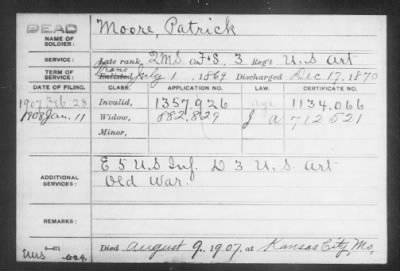 DEAD
NAME OF SOLDIER: Moore, Patrick
SERVICE: Late rank, QMS F+S, 3 Reg't U.S. Art
TERM OF SERVICE: Enlisted Trans July 1, 1869 Discharged Dec 17, 1870
DATE OF FILING. CLASS. APPLICATION NO. LAW. CERTIFICATE NO.
1907 Feb. 28 Invalid, 1357,926 age 1134,066
1908 Jan. 11 Widow, 882,829 J a 712521
Minor,
ADDITIONAL SERVICES: E 5 U.S Inf. D 3 U.S. Art
Old War.
REMARKS:
Died August 9, 1907, at Kansas City, Mo.